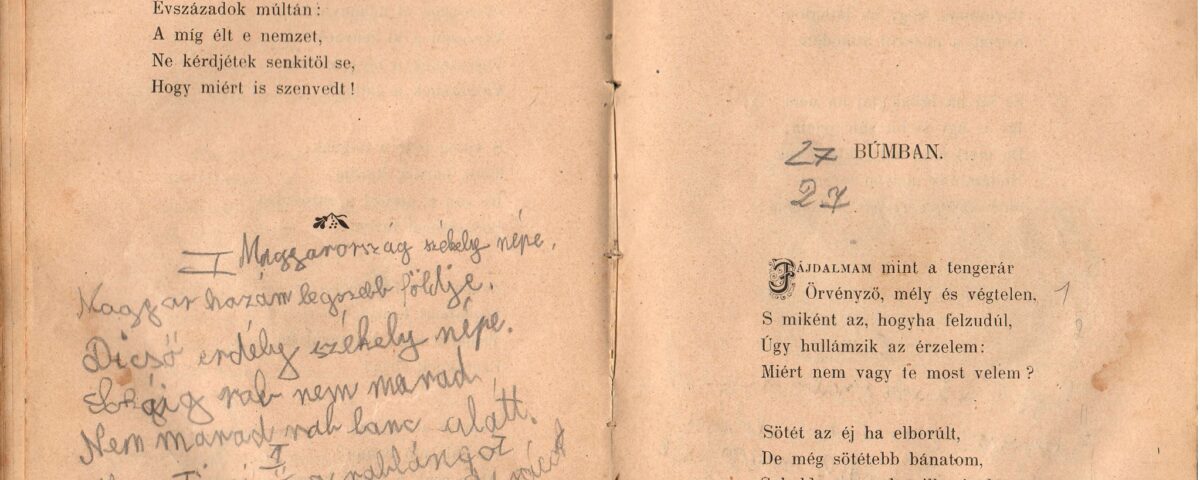 Évszázadok múltán:
A míg élt e nemzet,
Ne kérdjétek senkitöl se,
Hogy miért is szenvedt!
I Magyarország székely népe,
Magyar hazám legszebb földje.
Dicső erdély székely népe.
rab nem marad
Nem marad rab lanc alatt.
1
27 BÚMBAN.
27
FÁJDALMAM mint a tengerár
Örvényző, mély és végtelen, 1
S miként az, hogyha felzudúl,
Úgy hullámzik az érzelem:
Miért nem vagy te most velem?
Sötét az éj ha elborúlt,
De még sötétebb bánatom,